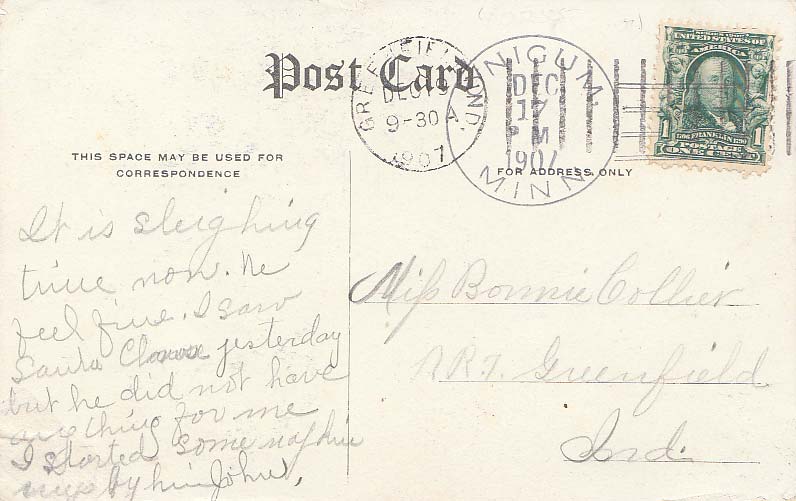 Post Card
GREENFIELD IND.
DEC 19
9-30 A
1907
NIGUM.
DEC
17
P M
1907
MINN
SERIES 1902
UNITED STATES OF
AMERICA
1706 FRANKLIN 1790
1 1
POSTAGE
ONE CENT
THIS SPACE MAY BE USED FOR
CORRESPONDENCE
FOR ADDRESS ONLY
It is sleighing
time now. We
feel fine. I saw
Santa Claus yesterday
but he did not have
anything for me
I started some napkin
rings by him John,
Miss Bonnie Collier
R.R.7. Greenfield
Ind.